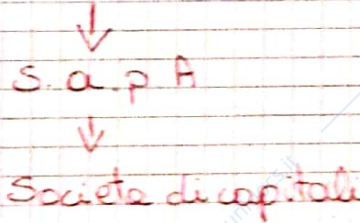 S. a. p A
Societa di capitali